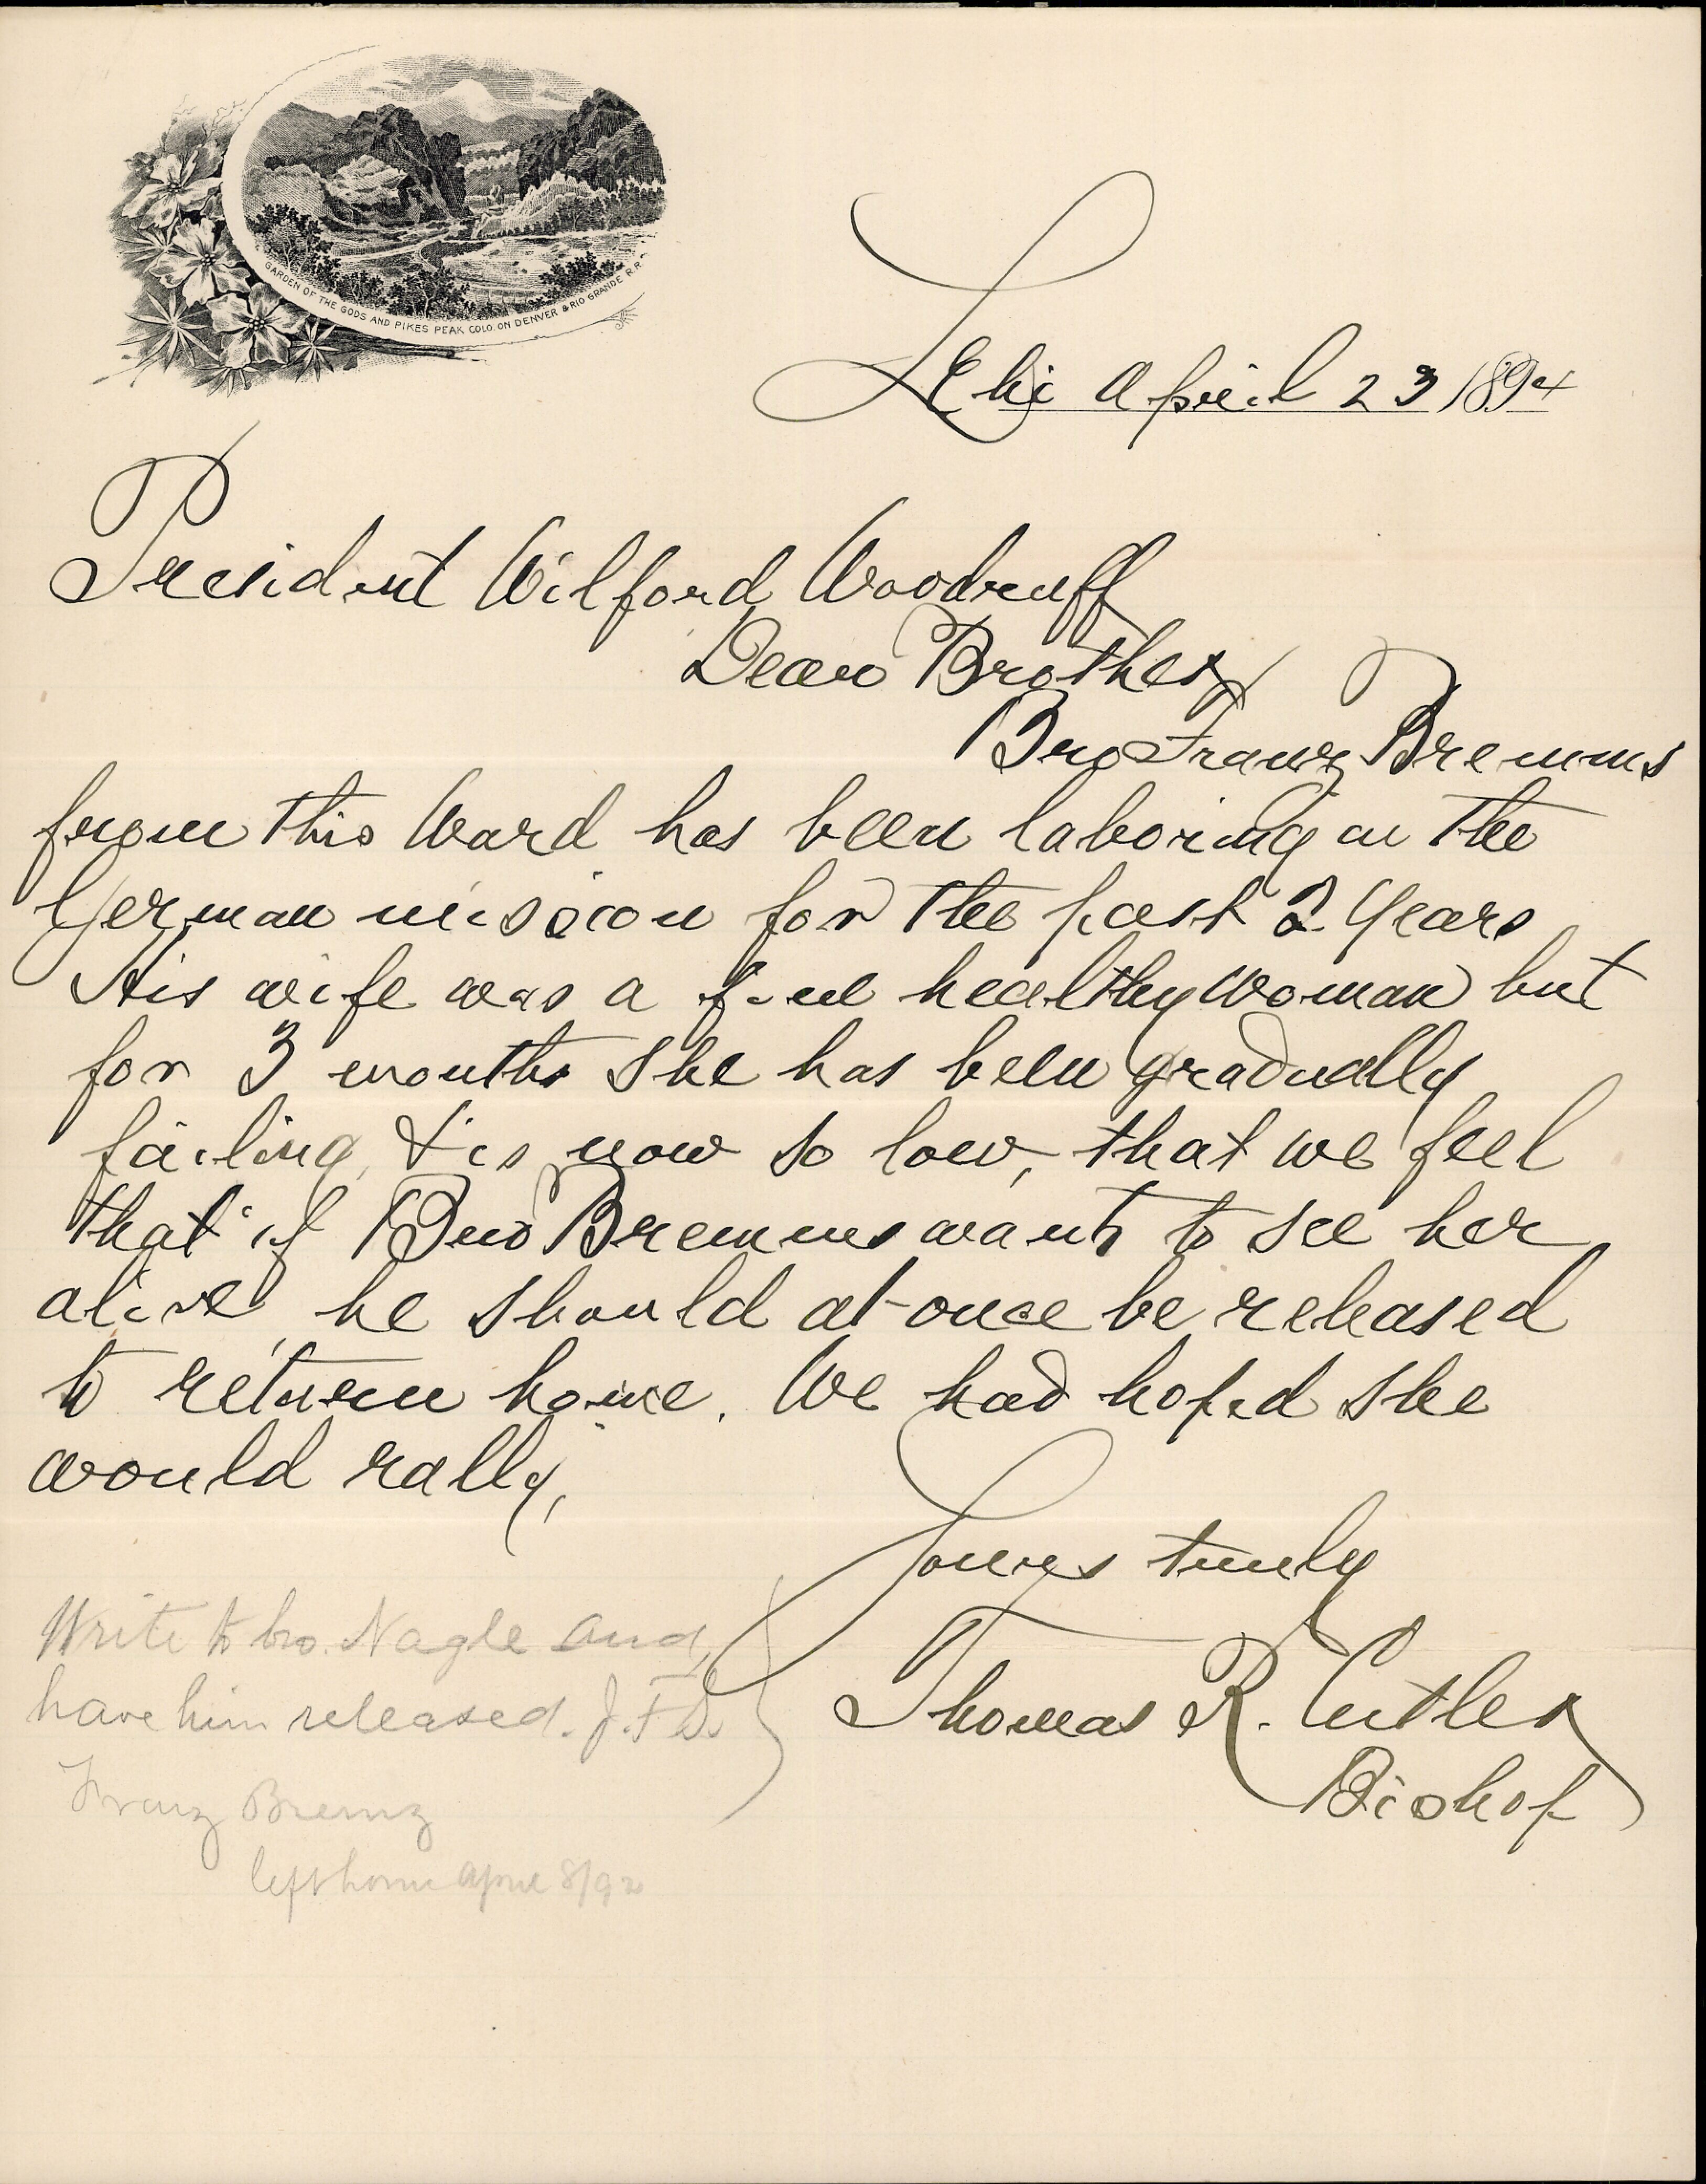 GARDEN OF THE GODS AND PIKES PEAK COLO. ON DENVER & RIO GRANDE R.R.
Lehi April 23 1894
President Wilford Woodruff
Dear Brother
Bro Franz Bremms
from this Ward has been laboring in the
German mission for the past 2 Years
His wife was a fine healthy Woman but
for 3 months she has been gradually
failing, & is now so low, that we feel
that if Bro Bremms wants to see her
alive, he should at once be released
to return home. We had hoped she
would rally,
Yours truly
Thomas R. Cutler
Bishop
Write to bro. Nagle and
have him released. J.F.S.
Franz Bremz
left home April 8/92